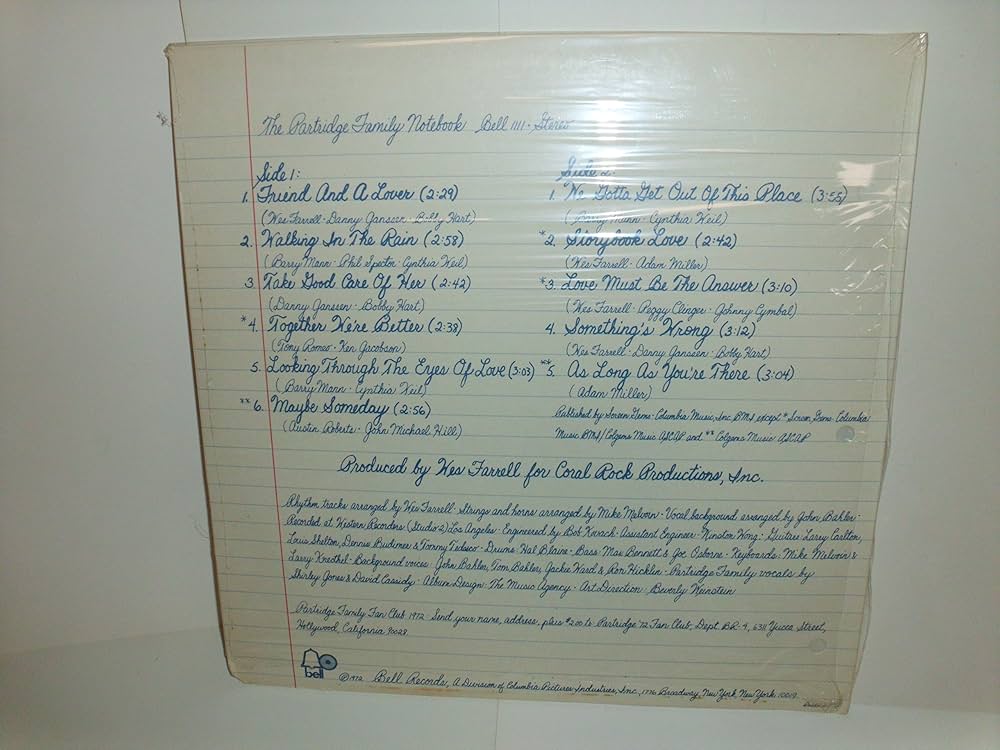 The Partridge Family Notebook Bell 1111 · Stereo
Side 1:
1. Friend And A Lover (2:29)
(Wes Farrell · Danny Janssen · Bobby Hart)
2. Walking In The Rain (2:58)
(Barry Mann · Phil Spector · Cynthia Weil)
3. Take Good Care Of Her (2:42)
(Danny Janssen · Bobby Hart)
*4. Together We're Better (2:38)
(Tony Romeo · Ken Jacobson)
5. Looking Through The Eyes Of Love (3:03)
(Barry Mann · Cynthia Weil)
**6. Maybe Someday (2:56)
(Austin Roberts · John Michael Hill)
Side 2:
1. We Gotta Get Out Of This Place (3:55)
(Barry Mann · Cynthia Weil)
*2. Storybook Love (2:42)
(Wes Farrell · Adam Miller)
*3. Love Must Be The Answer (3:10)
(Wes Farrell · Peggy Clinger · Johnny Cymbal)
4. Something's Wrong (3:12)
(Wes Farrell · Danny Janssen · Bobby Hart)
**5. As Long As You're There (3:04)
(Adam Miller)
Published by Screen Gems-Columbia Music, Inc. BMI, except *Screen Gems-Columbia
Music BMI/Colgems Music ASCAP and **Colgems Music ASCAP
Produced by Wes Farrell for Coral Rock Productions, Inc.
Rhythm tracks arranged by Wes Farrell · Strings and horns arranged by Mike Melvoin · Vocal background arranged by John Bahler ·
Recorded at Western Recorders (Studio 2) Los Angeles · Engineered by Bob Kovack · Assistant Engineer · Winston Wong · Guitars: Larry Carlton,
Louis Shelton, Dennis Budimer & Tommy Tedesco · Drums: Hal Blaine · Bass: Max Bennett & Joe Osborne · Keyboards: Mike Melvoin &
Larry Knechtel · Background voices: John Bahler, Tom Bahler, Jackie Ward & Ron Hicklin · Partridge Family vocals by
Shirley Jones & David Cassidy · Album Design: The Music Agency · Art Direction: Beverly Weinstein
Partridge Family Fan Club 1972 Send your name, address, plus $2.00 to Partridge '72 Fan Club, Dept. BR-4, 6311 Yucca Street,
Hollywood, California 90028.
bell
©1972 Bell Records, A Division of Columbia Pictures Industries, Inc., 1776 Broadway, New York, New York 10019